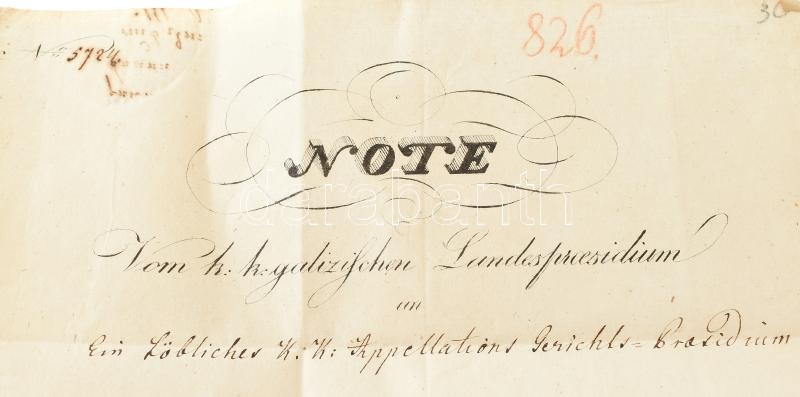 826.
30
No 5724
NOTE
Vom k: k: galizischen Landespraesidium
an
Ein Löbliches K: K: Appellations Gerichts= Praesidium
darabanth